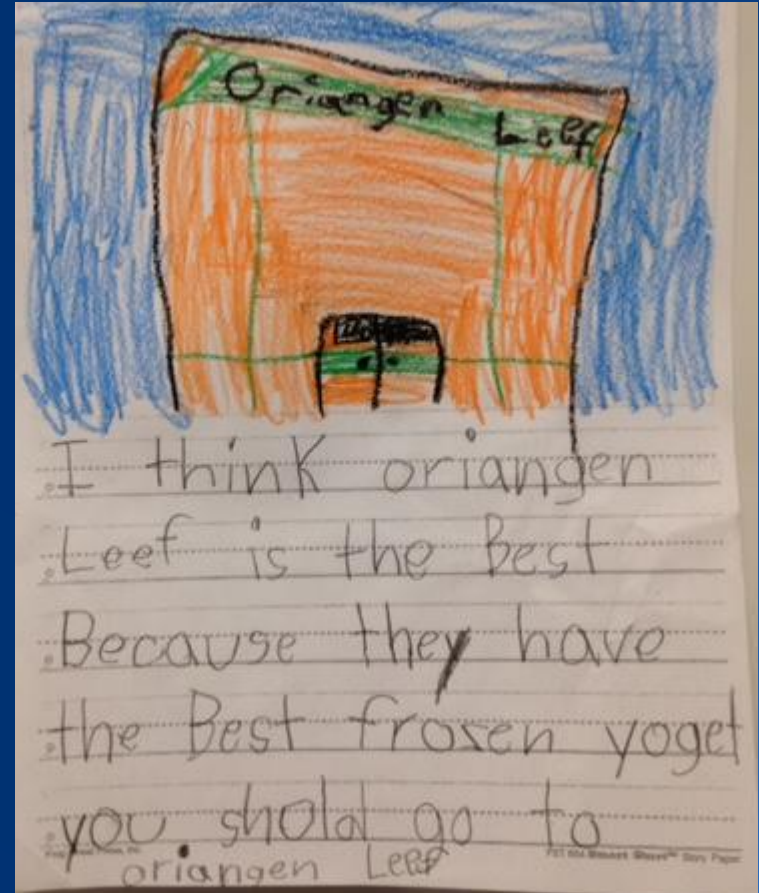 Oriangen Leef
I think oriangen
Leef is the Best
Because they have
the Best frozen yoget
you shold go to
oriangen Leef